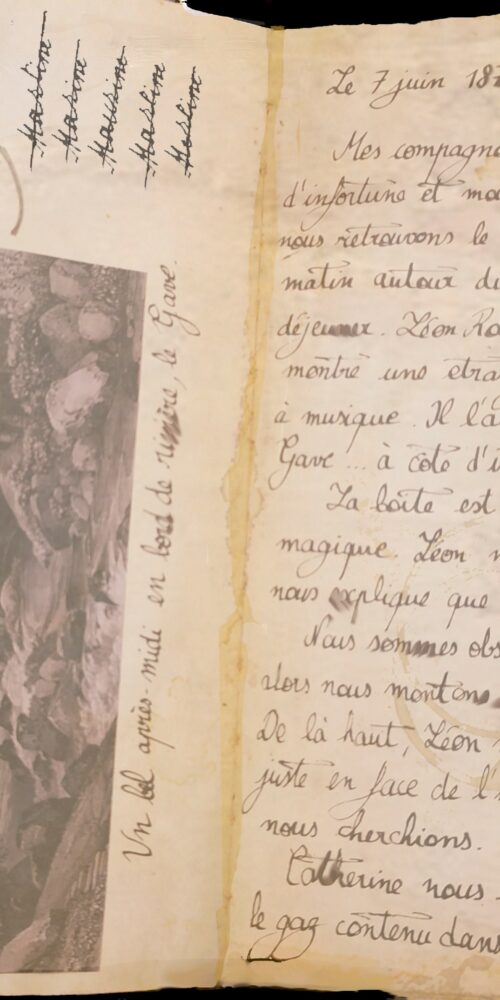 Maxime
Maxime
Maxime
Maxime
Maxime
Un bel après-midi en bord de rivière, le Gave.
Le 7 juin 18
Mes compagno
d'infortune et mo
nous retrouvons le
matin autour du
déjeuner. Léon Ro
montré une étra
à musique. Il l'a
Gave... à côté d'
La boîte est
magique. Léon
nous explique que
Nous sommes obs
alors nous montons
De là haut, Léon
juste en face de l'
nous cherchions.
Catherine nous
le gaz contenu dans